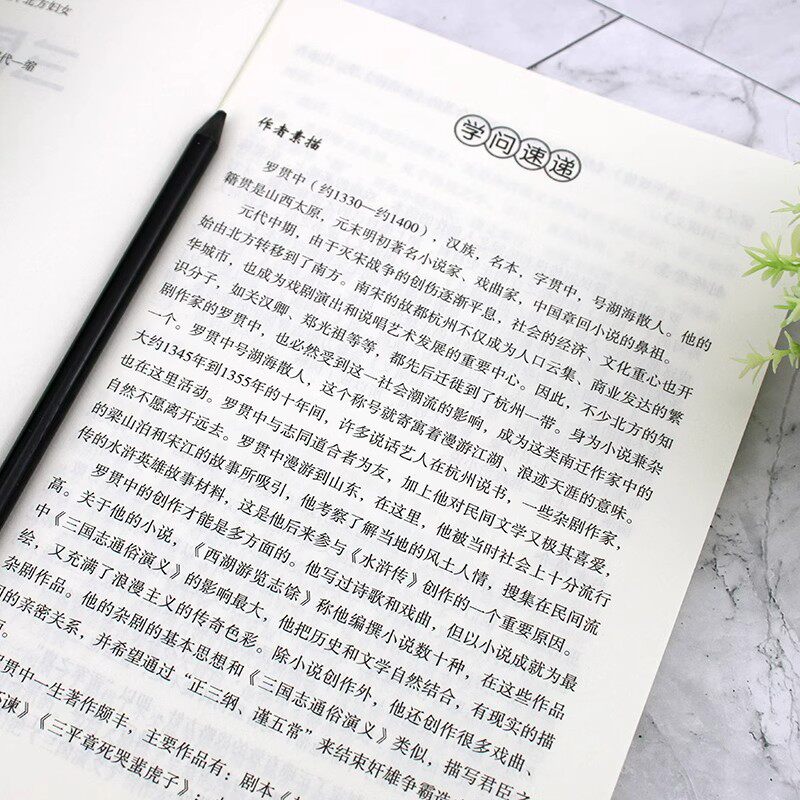 北方妇女
代一缩
学问速递
作者素描
罗贯中（约1330—约1400），汉族，名本，字贯中，号湖海散人。他的
籍贯是山西太原，元末明初著名小说家、戏曲家，中国章回小说的鼻祖。
元代中期，由于灭宋战争的创伤逐渐平息，社会的经济、文化重心也开
始由北方转移到了南方。南宋的故都杭州不仅成为人口云集、商业发达的繁
华城市，也成为戏剧演出和说唱艺术发展的重要中心。因此，不少北方的知
识分子，如关汉卿、郑光祖等等，都先后迁徙到了杭州一带。身为小说兼杂
剧作家的罗贯中，也必然受到这一社会潮流的影响，成为这类南迁作家中的
一个。罗贯中号湖海散人，这个称号就寄寓着漫游江湖、浪迹天涯的意味。
大约1345年到1355年的十年间，许多说话艺人在杭州说书，一些杂剧作家，
也在这里活动。罗贯中与志同道合者为友，加上他对民间文学又极其喜爱，
自然不愿离开远去。罗贯中漫游到山东，在这里，他被当时社会上十分流行
的梁山泊和宋江的故事所吸引，他考察了解当地的风土人情，搜集在民间流
传的水浒英雄故事材料，这是他后来参与《水浒传》创作的一个重要原因。
罗贯中的创作才能是多方面的。他写过诗歌和戏曲，但以小说成就为最
高。关于他的小说，《西湖游览志馀》称他编撰小说数十种，在这些作品
中《三国志通俗演义》的影响最大，他把历史和文学自然结合，有现实的描
绘，又充满了浪漫主义的传奇色彩。除小说创作外，他还创作很多戏曲、
杂剧作品。他的杂剧的基本思想和《三国志通俗演义》类似，描写君臣之
的亲密关系，并希望通过“正三纲、谨五常”来结束奸雄争霸造
罗贯中一生著作颇丰，主要作品有：剧本《
谏》《三平章死哭蜚虎子》；